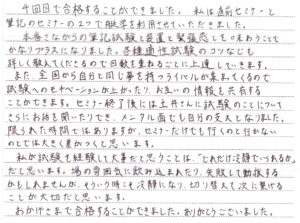 4回目で合格することができました。私は直前セミナーと
筆記のセミナーの2つで 学を利用させていただきました。
本番さながらの筆記試験と装置と緊張感をも味わうことで
かなりプラスになりました。各種適性試験のコツなども
詳しく教えてくださるので日数を重ねるごとに上達していきます。
また、全国から自分と同じ夢を持つライバルが集まってくるので
試験へのモチベーションが上がったり、お互いの情報も共有する
ことができます。セミナー終了後には土井さんに試験のことについて
さらにお話を聞いたりでき、メンタル面でも自分の支えとなりました。
限られた時間ではありますが、セミナーだけでも行くのと行かない
のとでは大きく差がつくと思います。
私が試験を経験して大事だと思うことは、「どれだけ冷静でいられるか」
だと思います。場の雰囲気に飲み込まれたり、失敗して動揺する
かもしれませんが、そういう時こそ冷静になり、切り替えて次に繋げる
ことが大切だと思います。
おかげさまで合格することができました。ありがとうございました。